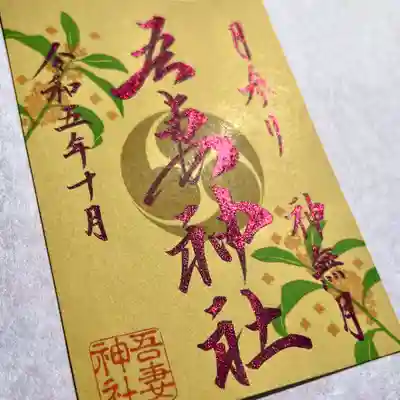 月参り
神無月
吾妻神社
令和五年十月
吾妻
神社